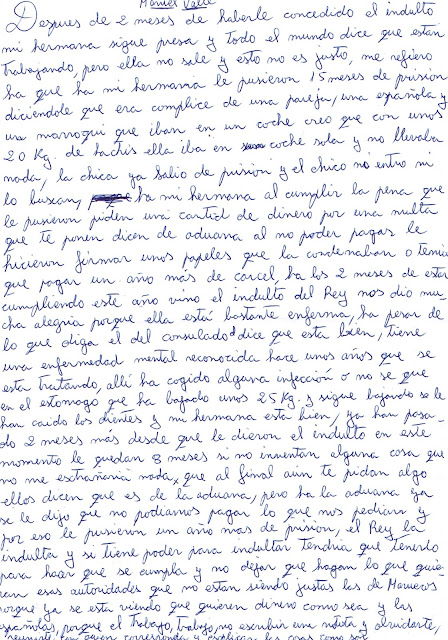 Manuel Valle
Despues de 2 meses de haberle concedido el indulto
mi hermana sigue presa y todo el mundo dice que estan
trabajando, pero ella no sale y esto no es justo, me refiero
ha que ha mi hermana le pusieron 15 meses de prision
diciendole que era complice de una pareja, una española y
un marroqui que iban en un coche creo que con unos
20 Kg. de hachis ella iba en coche sola y no llevaba
nada, la chica ya salio de prision y el chico no entro ni
lo buscan, ha mi hermana al cumplir la pena que
le pusieron piden una cantid de dinero por una multa
que te ponen dicen de aduana al no poder pagar le
hicieron firmar unos papeles que la condenaban o tenia
que pagar un año más de carcel, ha los 2 meses de estar
cumpliendo este año vino el indulto del Rey nos dio mu-
cha alegria porque ella está bastante enferma, ha pesar de
lo que diga el del consulado dice que esta bien, tiene
una enfermedad mental reconocida hace unos años que se
esta tratando, allí ha cogido alguna infección o no se que
en el estomago que ha bajado unos 25 Kg. y sigue bajando se le
han caido los dientes y mi hermana esta bien, ya han pasa-
do 2 meses más desde que le dieron el indulto en este
momento le quedan 8 meses si no inventan alguna cosa que
no me estrañaria nada, que al final aún te pidan algo
ellos dicen que es de la aduana, pero ha la aduana ya
se le dijo que no podiamos pagar lo que nos pedian y
por eso le pusieron un año mas de prision, el Rey la
indulta y si tiene poder para indultar tendria que tenerlo
para hacer que se cumpla y no dejar que hagan lo que quie-
ren esas autoridades que no estan siendo justas las de Marruecos
porque ya se esta viendo que quieren dinero como sea y las
españolas, porque el trabajo, trabajo, no escribir una notita y olvidarte,
reunirse con quien corresponda y explicar las cosas como son